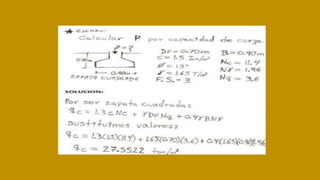 ★ EJEMPLO:
Calcular P por capacidad de carga.
P = ?
DF = 0.70m B = 0.90m
C = 1.5 Ton/m² Nc = 11.4
0.70m
φ = 13° Nγ = 1.96
0.90m
γ = 1.65 T/m³ Nq = 3.6
ZAPATA CUADRADA F.S. = 3
SOLUCION:
Por ser zapata cuadrada:
qc = 1.3 c Nc + γ DF Nq + 0.4 γ B Nγ
sustituimos valores:
qc = 1.3(1.5)(11.4) + 1.65(0.70)(3.6) + 0.4(1.65)(0.90)(1.96)
qc = 27.5522 ton/m²